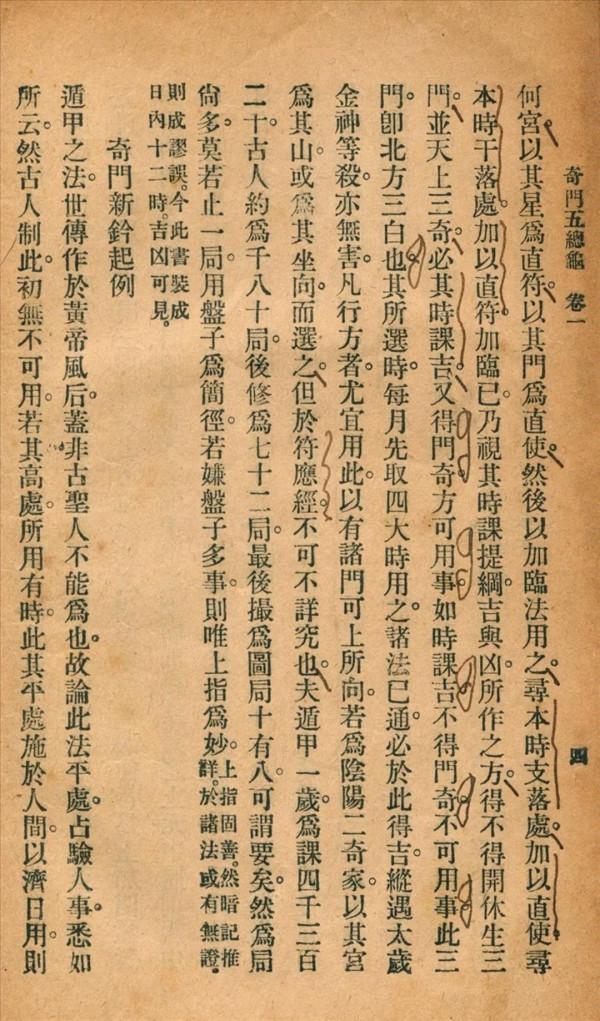 奇門五總龜 卷一
四
何宮。以其星爲直符。以其門爲直使。然後以加臨法用之。尋本時支落處。加以直使尋
本時干落處。加以直符加臨已。乃視其時課提綱。吉與凶。所作之方。得不得開休生三
門。並天上三奇。必其時課吉。又得門奇。方可用事。如時課吉。不得門奇。不可用事。此三
門。卽北方三白也。其所選時。每月先取四大時用之。諸法已通。必於此得吉。縱遇太歲
金神等殺。亦無害。凡行方者。尤宜用此。以有諸門可上所向。若爲陰陽二奇家。以其宮
爲其山。或爲其坐向。而選之。但於符應經。不可不詳究也。夫遁甲一歲。爲課四千三百
二十。古人約爲千八十局。後修爲七十二局。最後撮爲圖局十有八。可謂要矣。然爲局
尙多。莫若止一局。用盤子爲簡徑。若嫌盤子多事。則唯上指爲妙。上指固善。然暗記推詳。於諸法或有無證。
則成謬誤。今此書裝成日內十二時。吉凶可見。
奇門新鈐起例
遁甲之法。世傳作於黃帝風后。蓋非古聖人不能爲也。故論此法平處。占驗人事。悉如
所云。然古人制此。初無不可用。若其高處。所用有時。此其平處施於人間。以濟日用。則